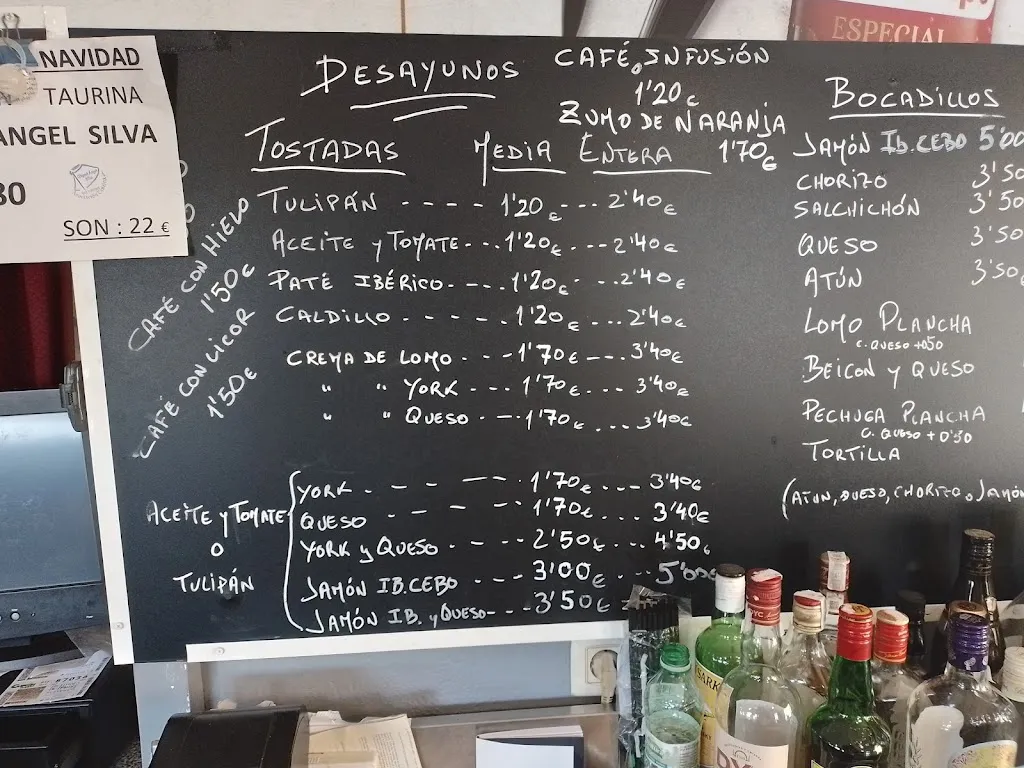 NAVIDAD
TAURINA
ANGEL SILVA
30
SON : 22 €
ESPECIAL
DESAYUNOS
CAFÉ o INFUSIÓN
1'20 €
ZUMO DE NARANJA
1'70 €
TOSTADAS MEDIA ENTERA
TULIPÁN ---- 1'20 € --- 2'40 €
ACEITE y TOMATE --- 1'20 € --- 2'40 €
PATÉ IBÉRICO --- 1'20 € --- 2'40 €
CALDILLO ---- 1'20 € --- 2'40 €
CREMA DE LOMO --- 1'70 € --- 3'40 €
" " YORK --- 1'70 € --- 3'40 €
" " QUESO --- 1'70 € --- 3'40 €
CAFÉ CON HIELO
1'50 €
CAFÉ CON LICOR
1'50 €
ACEITE y TOMATE
O
TULIPÁN
YORK - - - --- 1'70 € --- 3'40 €
QUESO - - - - 1'70 € --- 3'40 €
YORK y QUESO - - - 2'50 € --- 4'50 €
JAMÓN IB. CEBO --- 3'00 € --- 5'00 €
JAMÓN IB. y QUESO --- 3'50 €
BOCADILLOS
JAMÓN IB. CEBO 5'00
CHORIZO 3'50
SALCHICHÓN 3'50
QUESO 3'50
ATÚN 3'50 €
LOMO PLANCHA
C. QUESO +0'50
BEICON y QUESO
PECHUGA PLANCHA
C. QUESO + 0'50
TORTILLA
(ATUN, QUESO, CHORIZO o JAMÓN